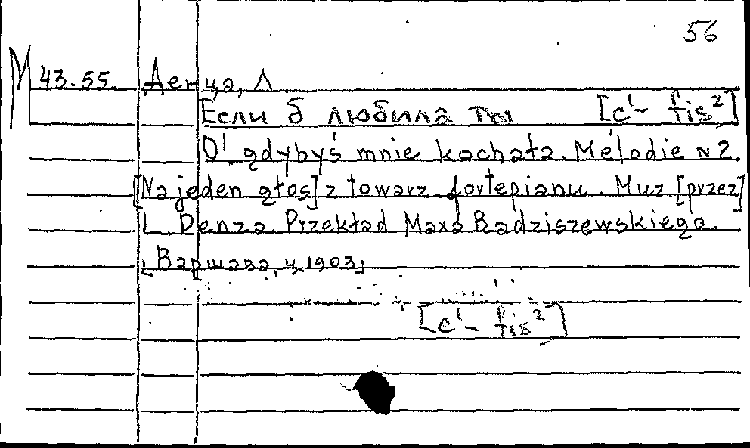 56
М 43.55. Денца, Л
Если б любила ты [c¹- fis²]
O! gdybyś mnie kochała. Mélodie N 2.
[Na jeden głos] z towarz fortepianu. Muz [przez]
L Denza Przekład Maxa Radziszewskiego.
[Варшава, ц. 1903]
[c¹- fis²]